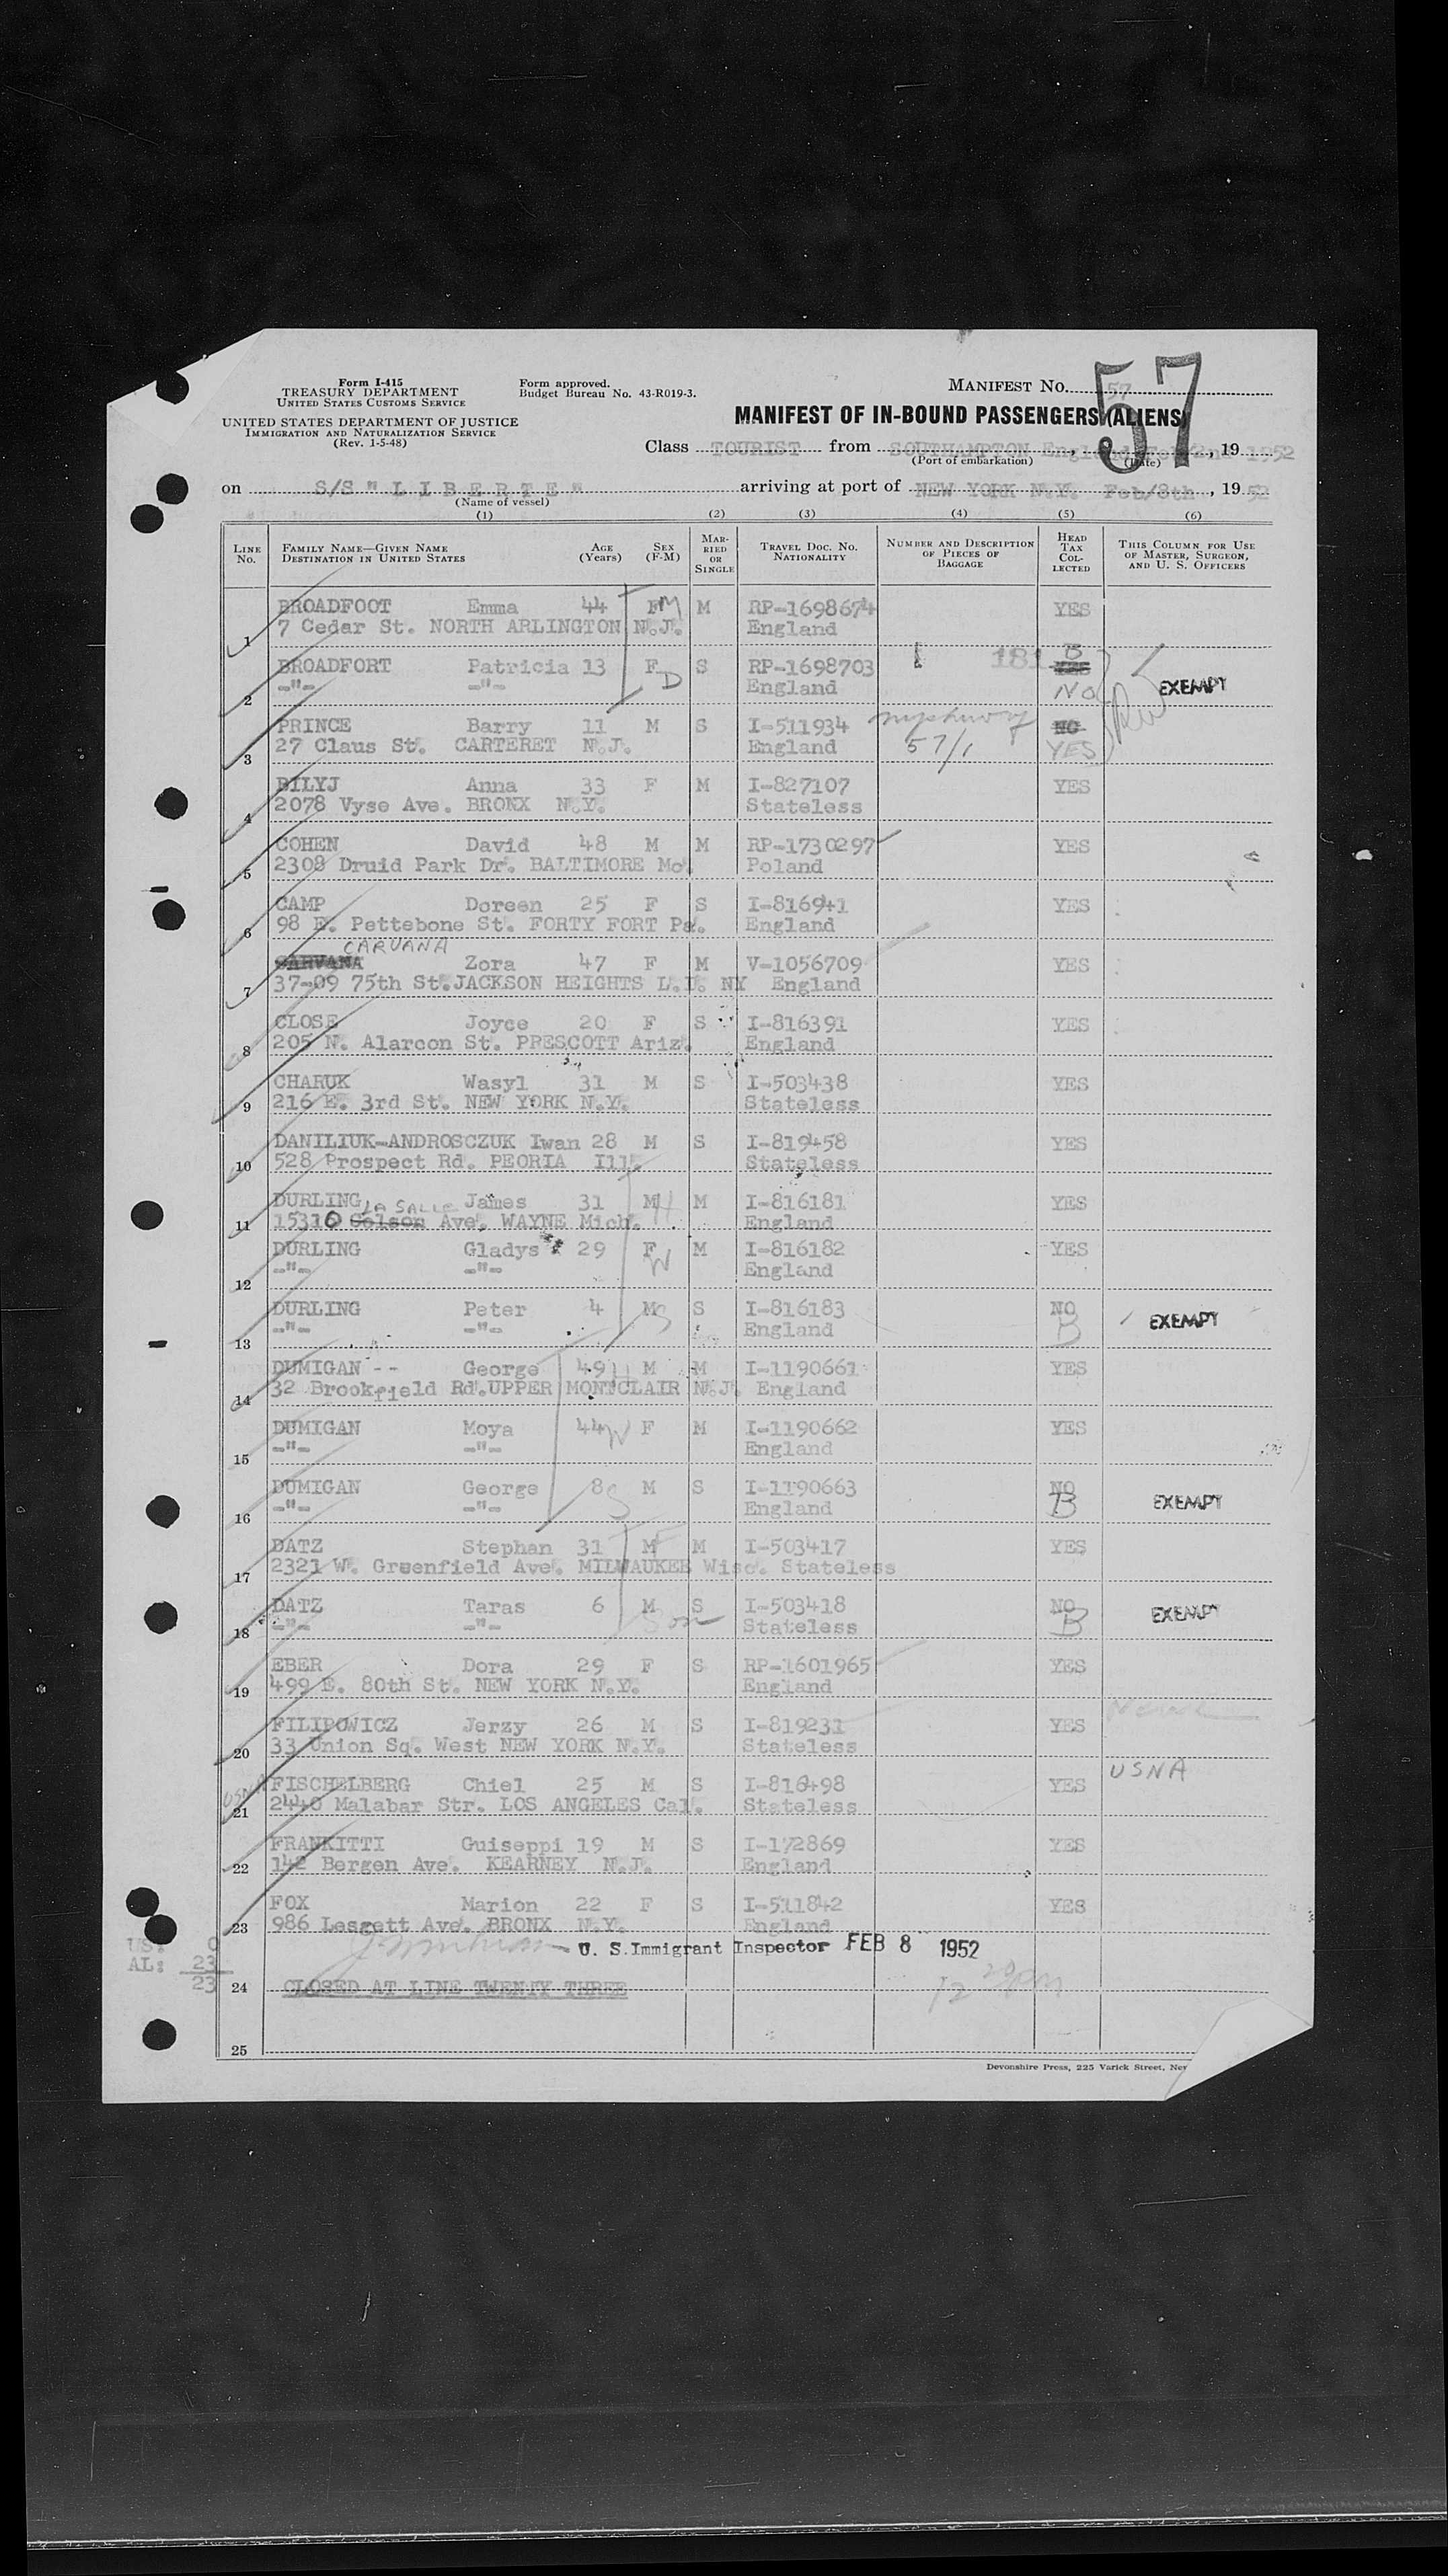 Form I-415
TREASURY DEPARTMENT
UNITED STATES CUSTOMS SERVICE
UNITED STATES DEPARTMENT OF JUSTICE
IMMIGRATION AND NATURALIZATION SERVICE
(Rev. 1-5-48)
Form approved.
Budget Bureau No. 43-R019-3.
MANIFEST No. 57
57
MANIFEST OF IN-BOUND PASSENGERS (ALIENS)
Class TOURIST from SOUTHAMPTON England, 19 1952
(Port of embarkation) (Date)
on S/S "LIBERTE" arriving at port of NEW YORK N.Y. Feb/8th, 19 52
(Name of vessel)
(1) (2) (3) (4) (5) (6)
LINE No. FAMILY NAME—GIVEN NAME DESTINATION IN UNITED STATES AGE (Years) SEX (F-M) MARRIED OR SINGLE TRAVEL DOC. NO. NATIONALITY NUMBER AND DESCRIPTION OF PIECES OF BAGGAGE HEAD TAX COLLECTED THIS COLUMN FOR USE OF MASTER, SURGEON, AND U. S. OFFICERS
BROADFOOT Emma 44 F M M RP-1698674 YES
1 7 Cedar St. NORTH ARLINGTON N.J. England
BROADFORT Patricia 13 F S RP-1698703 181 B
2 -"- -"- D England No EXEMPT
PRINCE Barry 11 M S I-511934 NO
3 27 Claus St. CARTERET N.J. England 57/1 YES
BILYJ Anna 33 F M I-827107 YES
4 2078 Vyse Ave. BRONX N.Y. Stateless
COHEN David 48 M M RP-1730297 YES
5 2308 Druid Park Dr. BALTIMORE Mo. Poland
CAMP Doreen 25 F S I-816941 YES
6 98 E. Pettebone St. FORTY FORT Pa. England
CARUANA
CARVANA Zora 47 F M V-1056709 YES
7 37-09 75th St. JACKSON HEIGHTS L.I. NY England
CLOSE Joyce 20 F S I-816391 YES
8 205 N. Alarcon St. PRESCOTT Ariz. England
CHARUK Wasyl 31 M S I-503438 YES
9 216 E. 3rd St. NEW YORK N.Y. Stateless
DANILIUK-ANDROSCZUK Iwan 28 M S I-819458 YES
10 528 Prospect Rd. PEORIA Ill. Stateless
DURLING James 31 M H M I-816181 YES
LA SALLE
11 15310 Ave. WAYNE Mich. England
DURLING Gladys 29 F W M I-816182 YES
12 -"- -"- England
DURLING Peter 4 M S S I-816183 NO
13 -"- -"- England B EXEMPT
DUMIGAN George 49 H M M I-1190661 YES
14 32 Brookfield Rd. UPPER MONTCLAIR N.J. England
DUMIGAN Moya 44 W F M I-1190662 YES
15 -"- -"- England
DUMIGAN George 8 S M S I-1190663 NO
16 -"- -"- England B EXEMPT
DATZ Stephan 31 M F M I-503417 YES
17 2321 W. Greenfield Ave. MILWAUKEE Wisc. Stateless
DATZ Taras 6 M S I-503418 NO
18 -"- -"- Son Stateless B EXEMPT
EBER Dora 29 F S RP-1601965 YES
19 499 E. 80th St. NEW YORK N.Y. England
FILIPOWICZ Jerzy 26 M S I-819231 YES
20 33 Union Sq. West NEW YORK N.Y. Stateless
FISCHELBERG Chiel 25 M S I-816498 YES USNA
USNA
21 2440 Malabar Str. LOS ANGELES Cal. Stateless
FRANKITTI Guiseppi 19 M S I-172869 YES
22 142 Bergen Ave. KEARNEY N.J. England
FOX Marion 22 F S I-511842 YES
23 986 Lesgett Ave. BRONX N.Y. England
US: 0
AL: 23
23
U. S. Immigrant Inspector FEB 8 1952
24 CLOSED AT LINE TWENTY THREE
25
Devonshire Press, 225 Varick Street, New